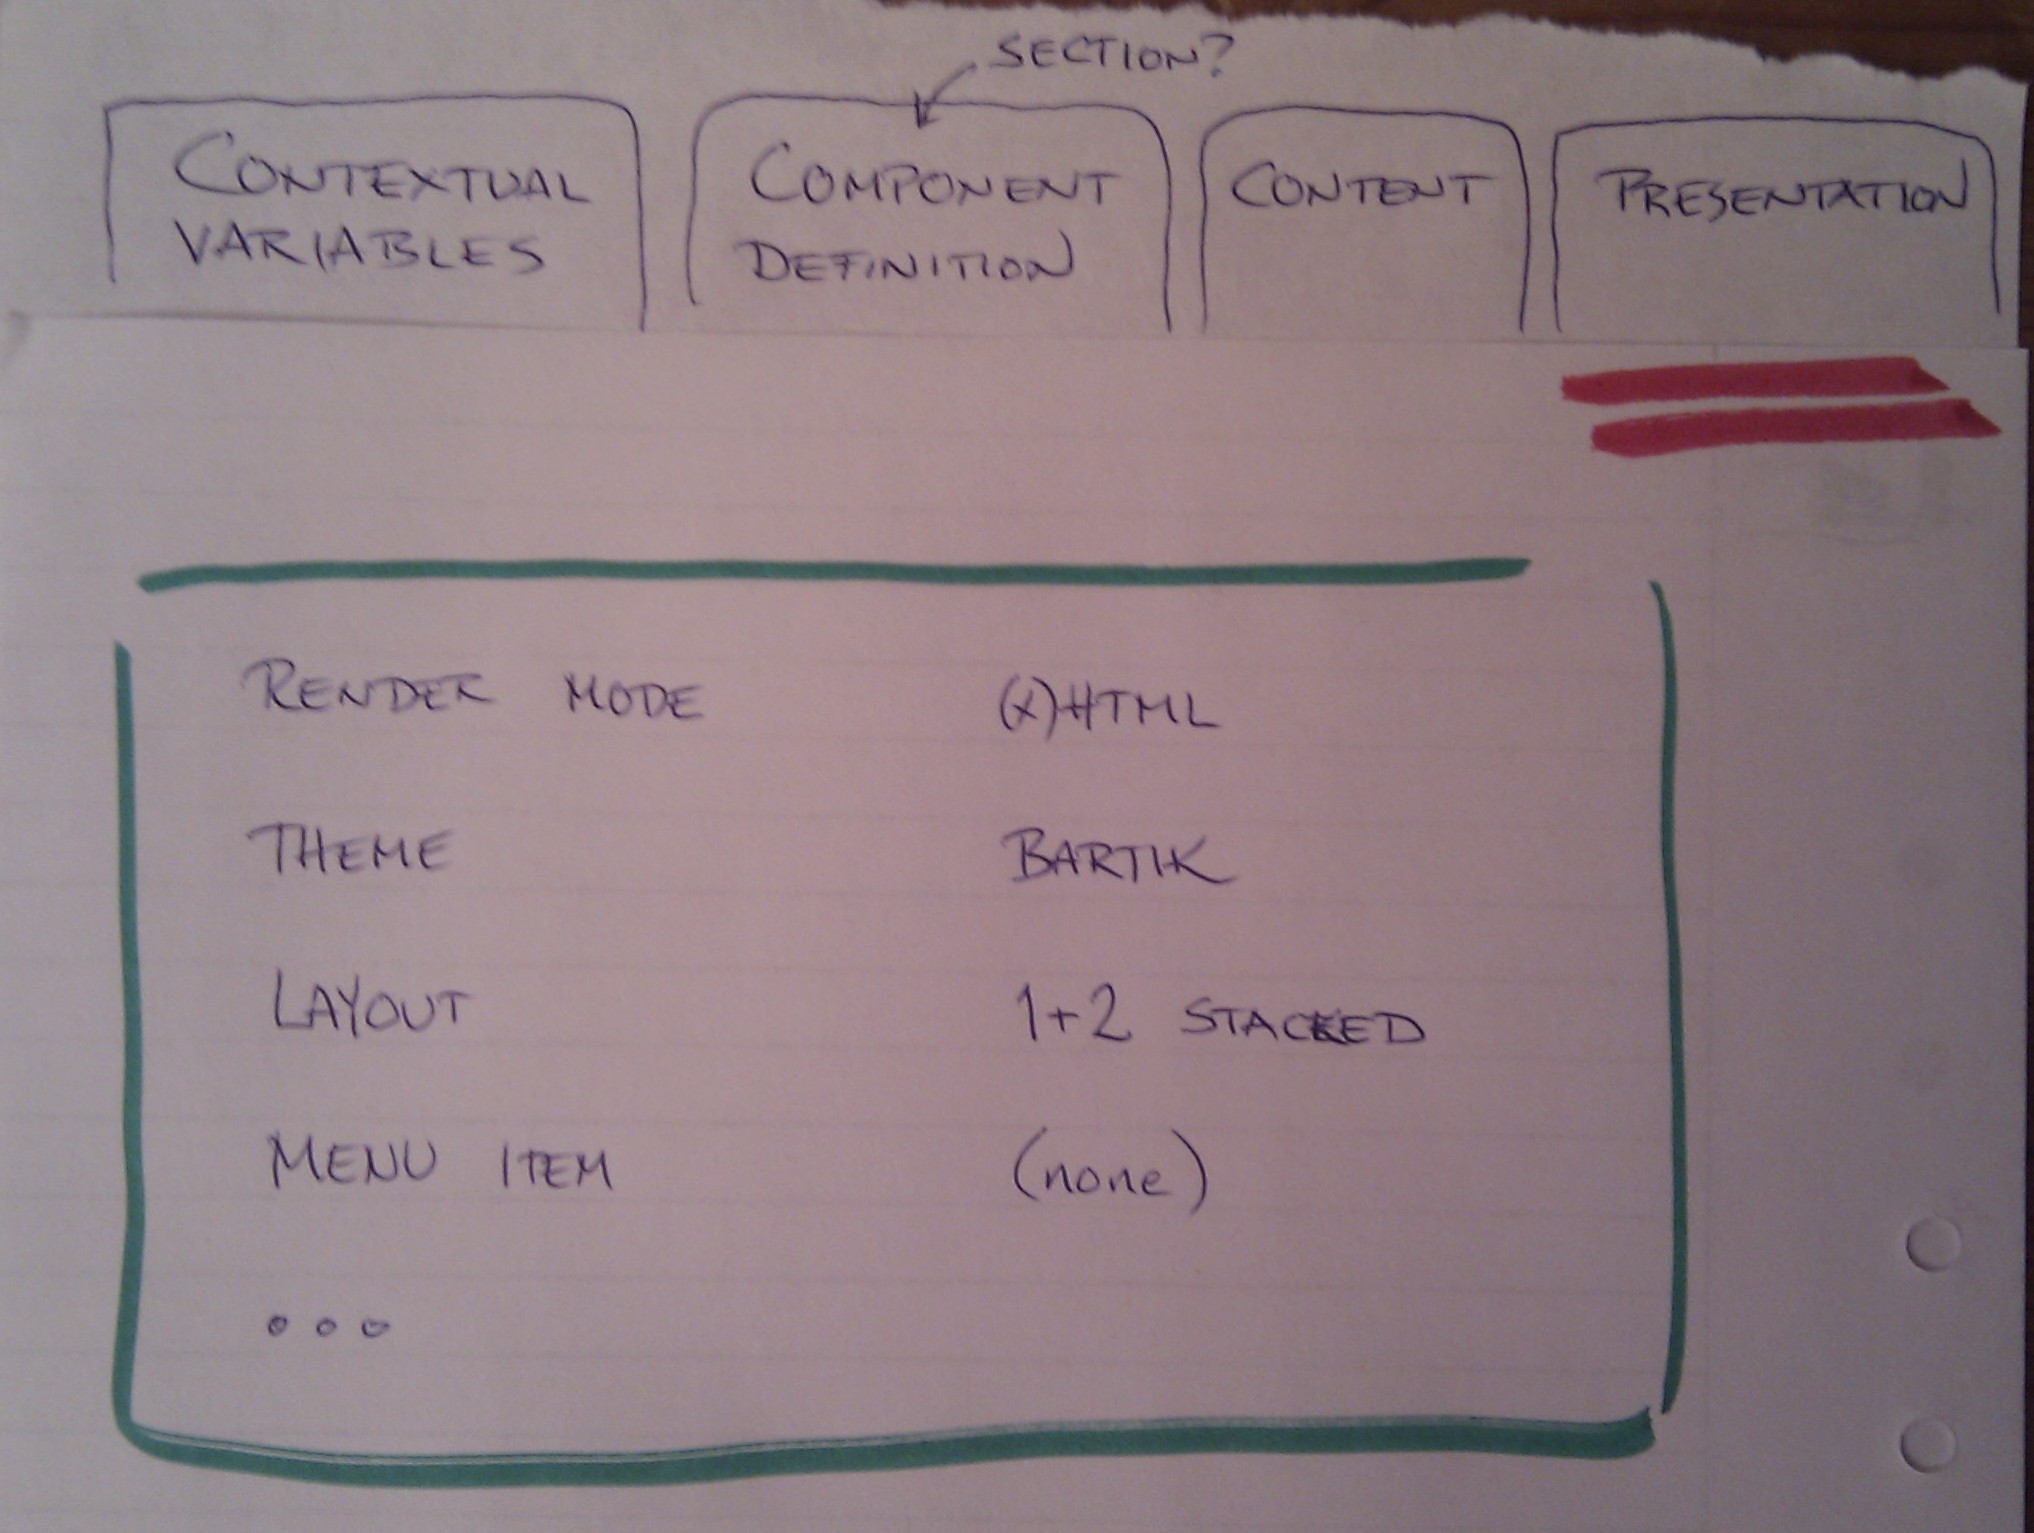 SECTION?
CONTEXTUAL
VARIABLES
COMPONENT
DEFINITION
CONTENT
PRESENTATION
RENDER MODE (X)HTML
THEME BARTIK
LAYOUT 1+2 STACKED
MENU ITEM (none)
...